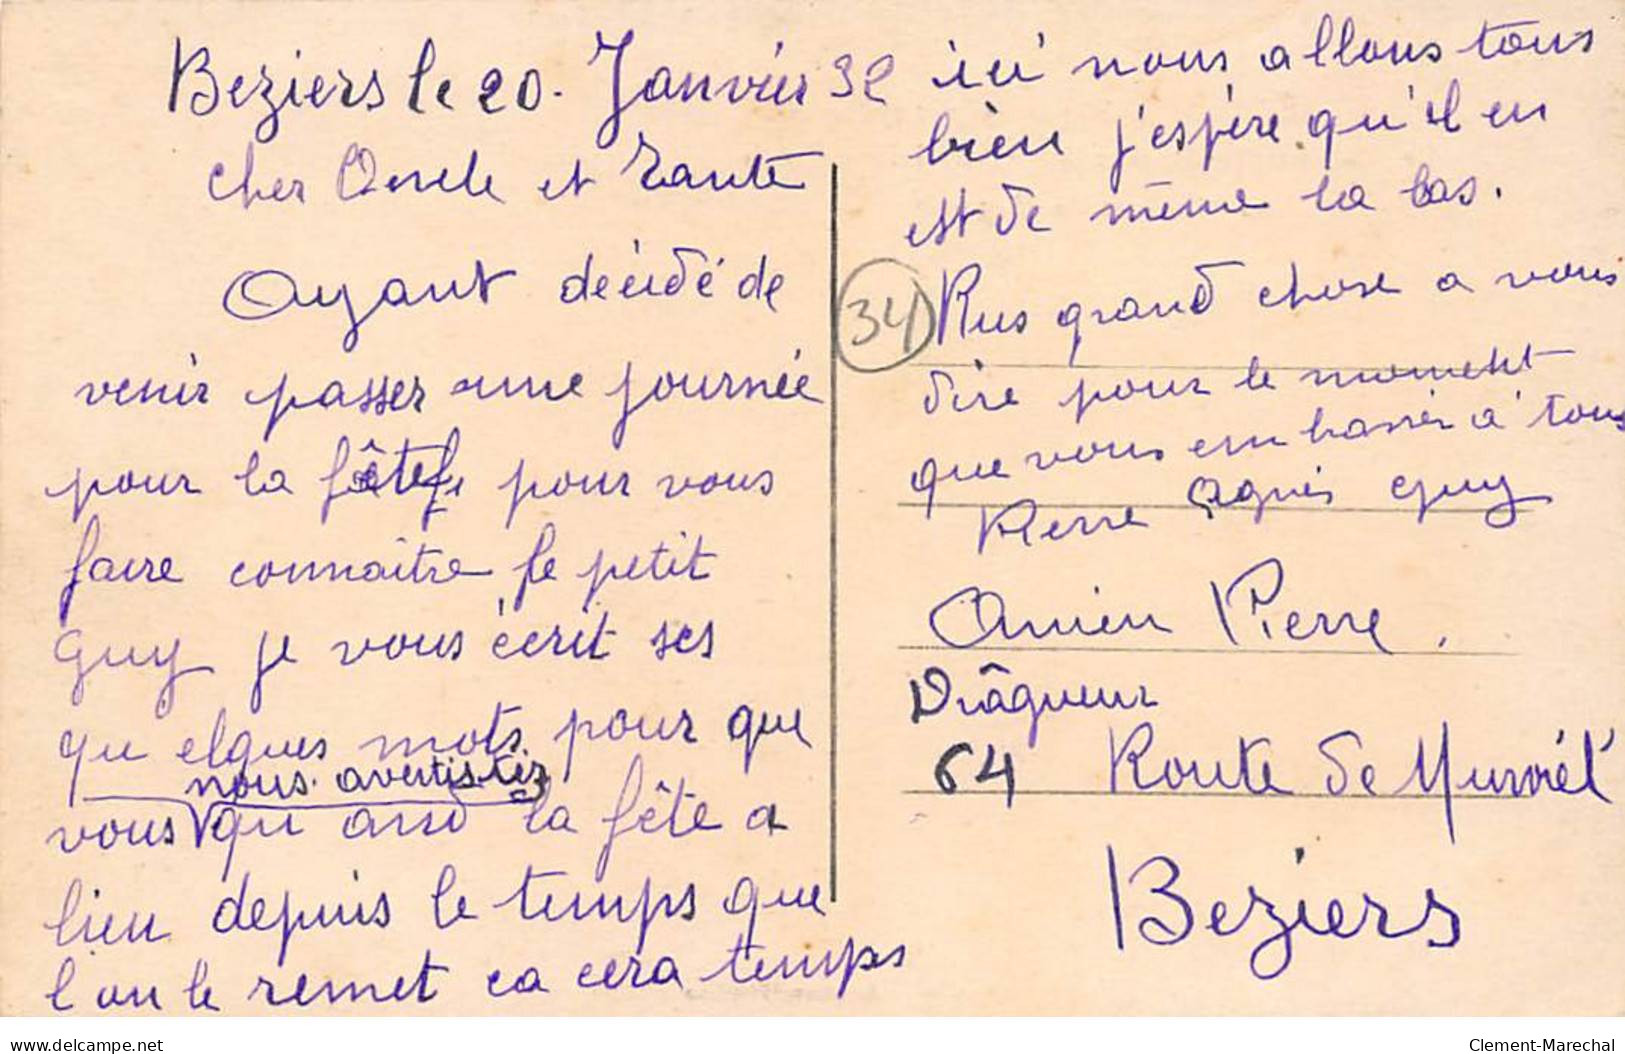 Beziers le 20. Janvier 32
Cher Oncle et Tante
Ayant décidé de
venir passer une journée
pour la fête pour vous
faire connaitre le petit
Guy je vous écrit ses
qu elques mots pour que
nous avertistez
vous qu and la fête a
lieu depuis le temps que
l on le remet ca cera temps
ici nous allons tous
bien j'espère qu'il en
est de même la bas.
Plus grand chose a vous
dire pour le moment
que vous embrasser à tous
Pierre Agnès Guy
34
Pierre .
Drâgueur
64 Route de Murviel
Beziers
www.delcampe.net
Clement-Marechal